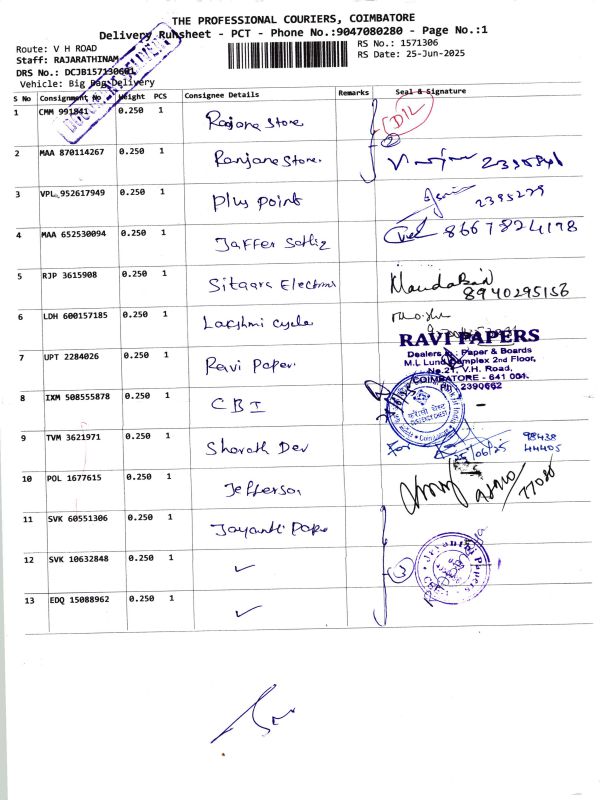 THE PROFESSIONAL COURIERS, COIMBATORE
Delivery Runsheet - PCT - Phone No.:9047080280 - Page No.:1
Route: V H ROAD
RS No.: 1571306
Staff: RAJARATHINAM
RS Date: 25-Jun-2025
DRS No.: DCJB157130601
Vehicle: Big Bag Delivery
S No Consignment No Weight PCS Consignee Details Remarks Seal & Signature
1 CMM 991841 0.250 1 Ranjana Store
DIL
2 MAA 870114267 0.250 1 Ranjana Store. 2
3 VPL 952617949 0.250 1 Plus Point 2395279
4 MAA 652530094 0.250 1 Jaffer 8667824178
5 RJP 3615908 0.250 1 Sitaara 8940295156
6 LDH 600157185 0.250 1 Lakshmi Cycle
RAVI PAPERS
Dealers in: Paper & Boards
M.L Lund Complex 2nd Floor,
No.21, V.H. Road,
COIMBATORE - 641 001.
Ph: 2390662
7 UPT 2284026 0.250 1 Ravi Paper
8 IXM 508555878 0.250 1 CBI
CURRENCY CHEST
9 TVM 3621971 0.250 1 Sharath Dev For 25/06/25 98438
44405
10 POL 1677615 0.250 1 Jefferson
11 SVK 60551306 0.250 1 Jayanti Pape
12 SVK 10632848 0.250 1 ✓ 3
Jayanti Papers
13 EDQ 15088962 0.250 1 ✓